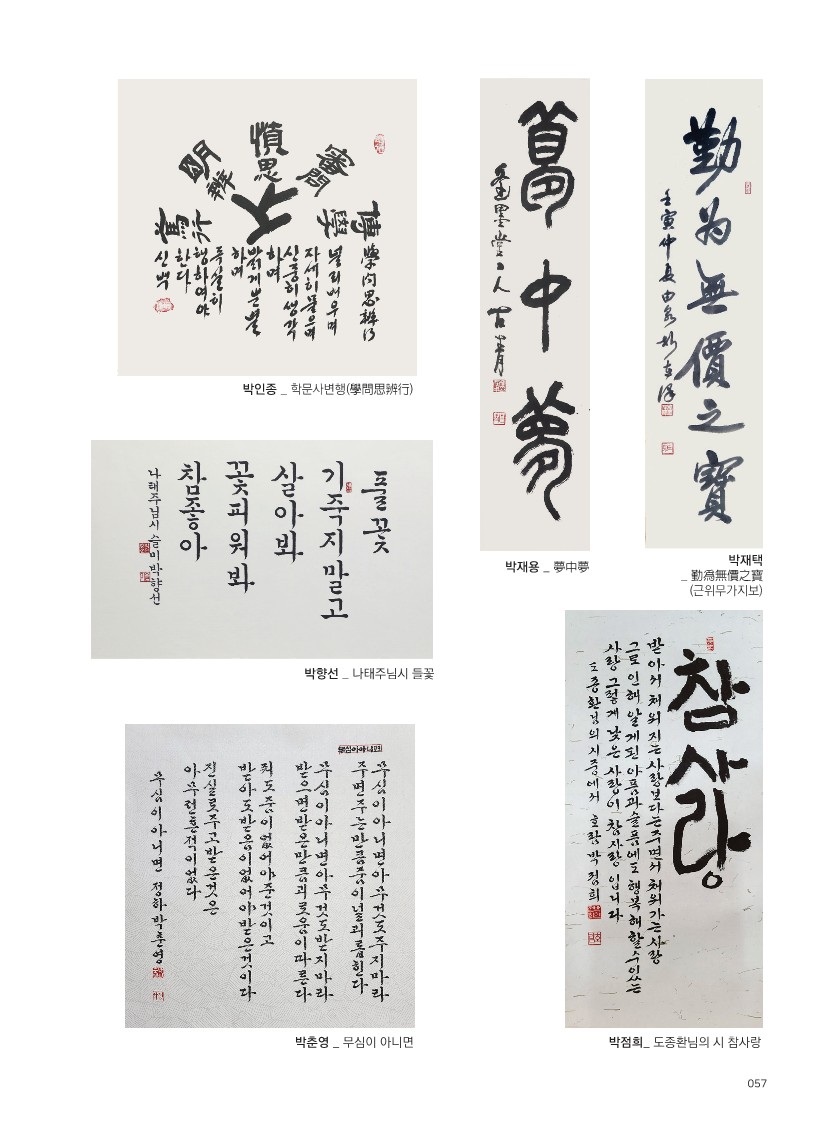 博學
審問
慎思
明辨
篤行
學問思辨行
널리배우며
자세히물으며
신중히생각
하며
밝게분별
하며
독실히
행하여야
한다
신백
박인종 _ 학문사변행(學問思辨行)
夢中夢
박재용 _ 夢中夢
勤为無價之寶
壬寅仲夏
박재택
_ 勤為無價之寶
(근위무가지보)
풀꽃
기죽지말고
살아봐
꽃피워봐
참좋아
나태주님시 슬미박향선
박향선 _ 나태주님시 들꽃
참사랑
받아서 채워지는사랑보다는주면서 채워가는사랑
그로 인해 알게된 아픔과슬픔에도 행복해 할수있는
사랑 그렇게 낮은 사랑이 참사랑 입니다
도종환님의시중에서 호랑박점희
박점희_ 도종환님의 시 참사랑
무심이아니면
무심이아니면아무것도주지마라
주면주는만큼중이널괴롭힌다
무심이아니면아무것도받지마라
받으면받은만큼괴로움이따른다
줘도줌이없어야준것이고
받아도받음이없어야받은것이다
진실로주고받은것은
아무런흔적이없다
무심이 아니면 정하박춘영
박춘영 _ 무심이 아니면
057